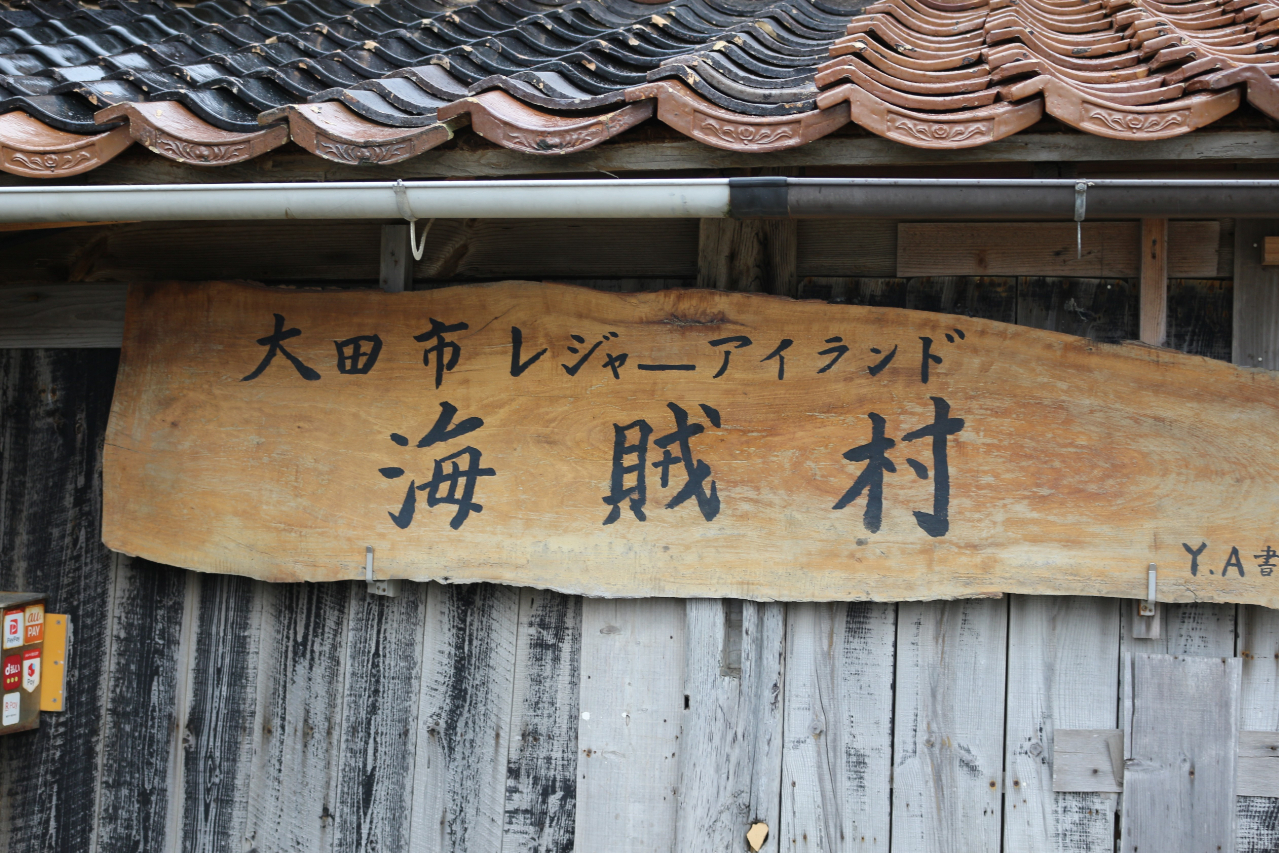 大田市レジャーアイランド
海賊村
Y.A書
PayPay
au PAY
d払い
R Pay